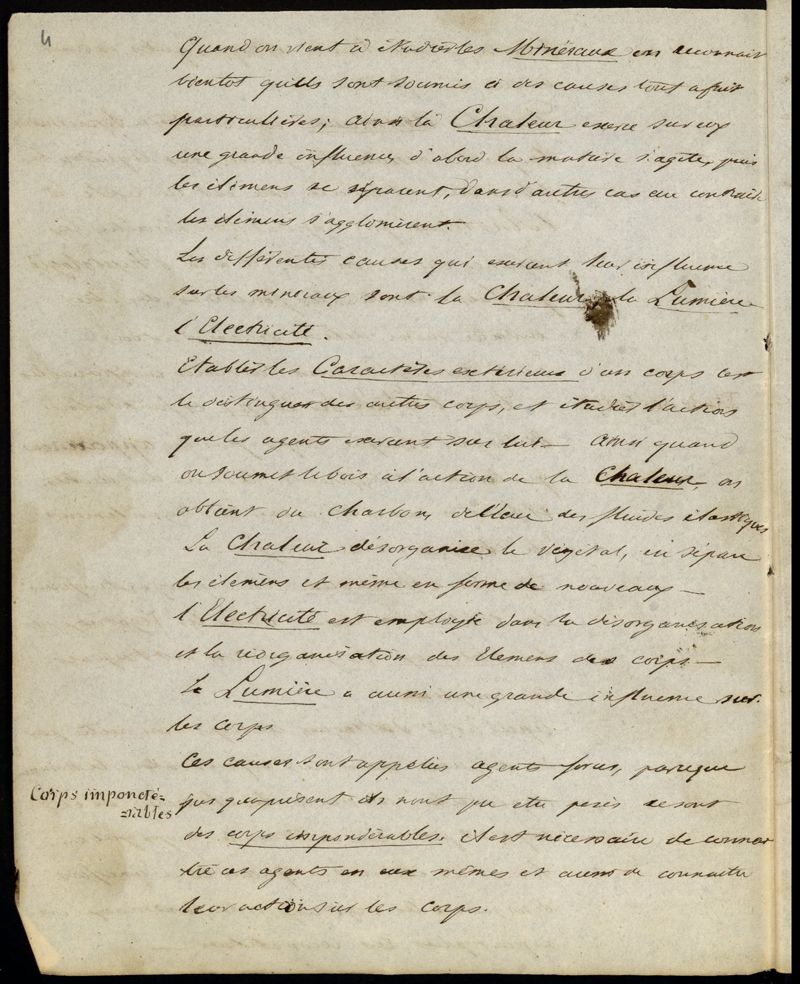 4
Quand on vient à étudier les Minéraux on reconnait
bientot qu'ils sont soumis à des causes tout a fait
particulières; ainsi la Chaleur exerce sur eux
une grande influence, d'abord la matière s'agite, puis
les élémens se séparent, dans d'autres cas au contraire
les élémens s'agglomèrent.
Les différentes causes qui exercent leur influence
sur les minéraux sont la Chaleur la Lumière
l'Electricité.
Etablir les Caractères extérieurs d'un corps c'est
le distinguer des autres corps, et étudier l'action
que les agents exercent sur lui — ainsi quand
on soumet le bois à l'action de la Chaleur, on
obtient du charbon, de l'eau des fluides élastiques
La Chaleur désorganise le végétal, en sépare
les élémens et même en forme de nouveaux —
l'Electricité est employée dans la désorganisation
et la réorganisation des Elemens des corps —
La Lumière a aussi une grande influence sur
les corps
Ces causes sont appelées agents forces, parceque
jusqu'aprésent ils n'ont pu etre pesés ce sont
Corps imponderables
des corps impondérables. il est nécessaire de connai
tre ces agents en eux mêmes et aussi de connaitre
leur action sur les corps.